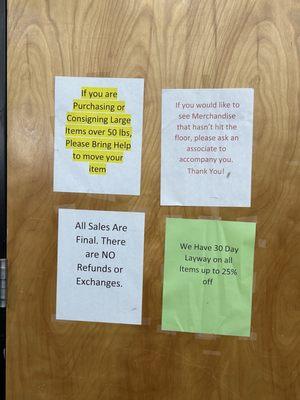 If you are
Purchasing or
Consigning Large
Items over 50 lbs,
Please Bring Help
to move your
item
If you would like to
see Merchandise
that hasn't hit the
floor, please ask an
associate to
accompany you.
Thank You!
All Sales Are
Final. There
are NO
Refunds or
Exchanges.
We Have 30 Day
Layway on all
Items up to 25%
off